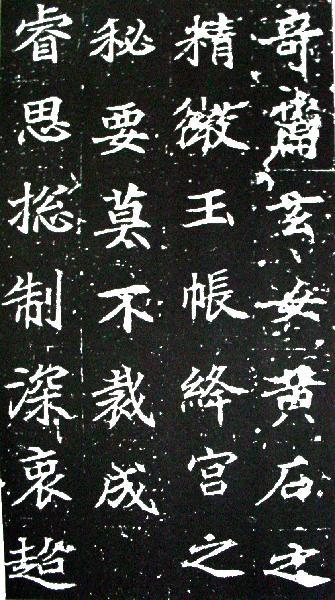 奇玄女黄石之
精微玉帳絳宫之
秘要莫不裁成
睿思摠制深衷超